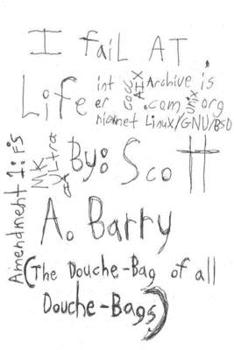 I faiL AT
Life
int
er
net
Archive.is
.com
org
Linux/GNU/BSD
AIX
unix
By: Scott
MK
ULtra
A. Barry
Amendment 1: FS
(The Douche-Bag of all
Douche-Bags)